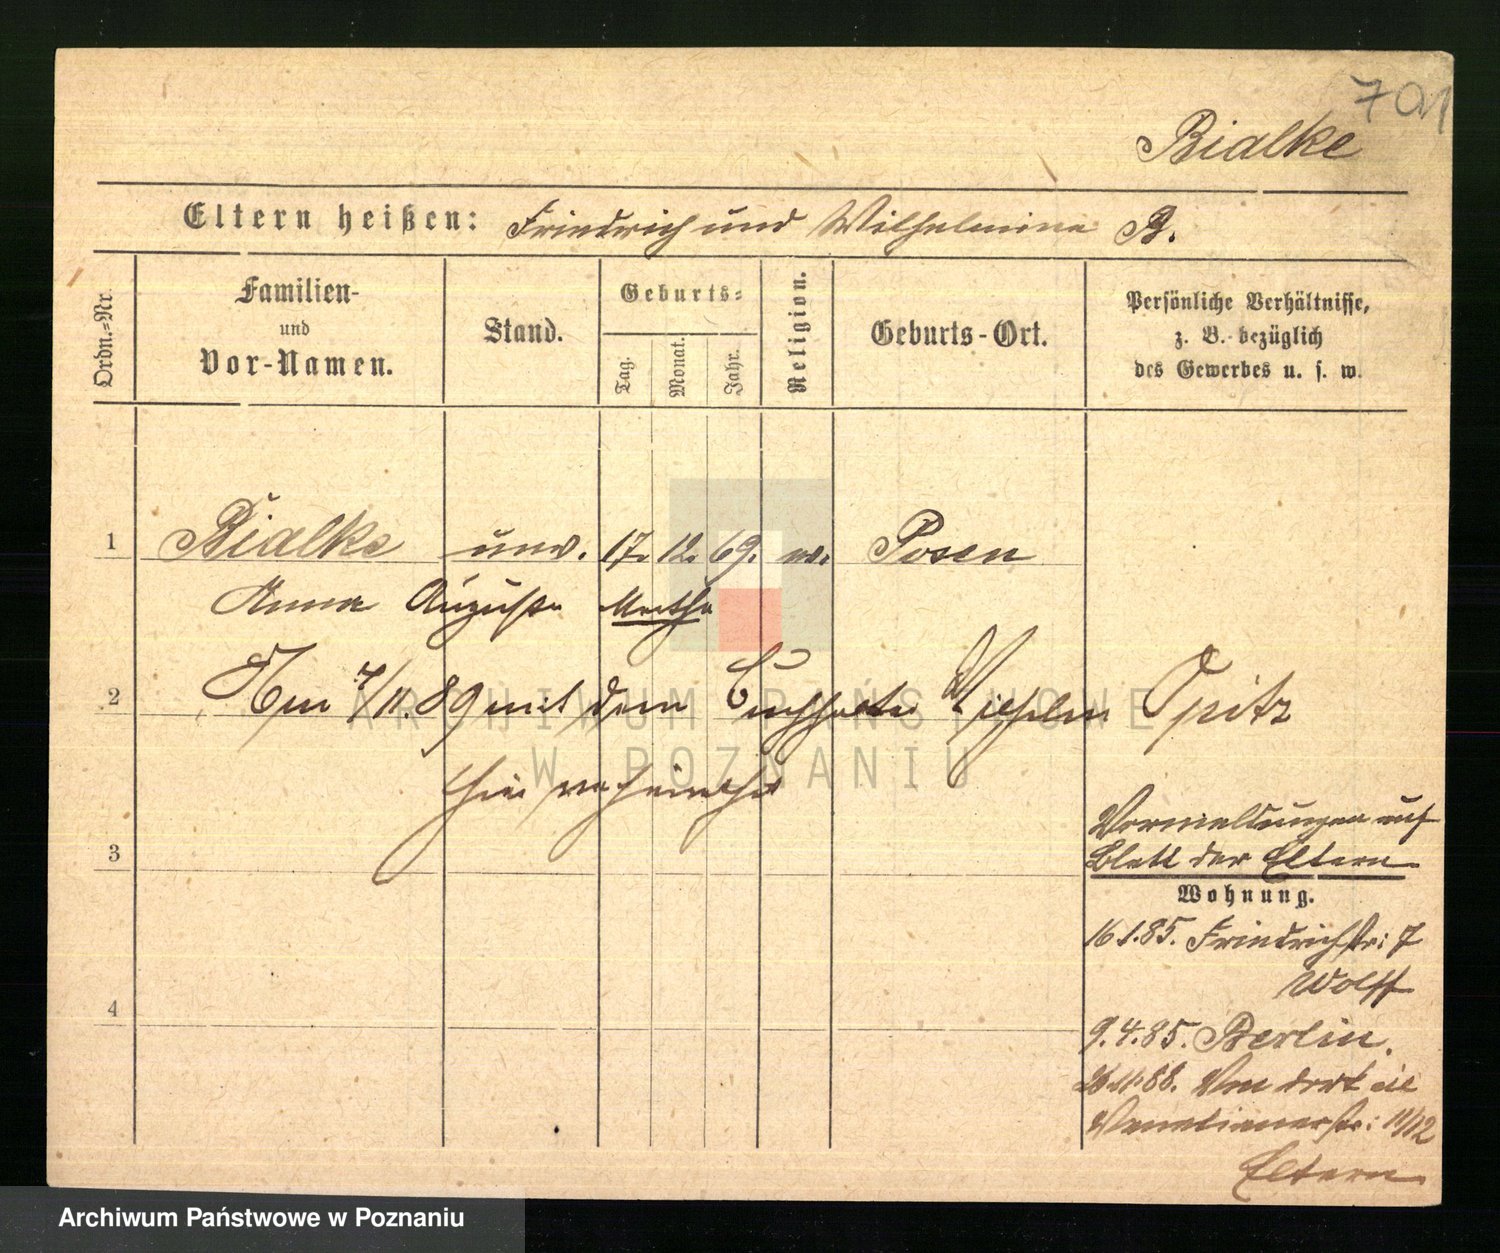 701
Bialke
Eltern heißen: Friedrich und Wilhelmine B.
Ordn.=Nr.
Familien-
und
Vor-Namen.
Stand.
Geburts=
Tag.
Monat.
Jahr.
Religion.
Geburts-Ort.
Persönliche Verhältnisse,
z. B. bezüglich
des Gewerbes u. s. w.
1 Bialke unv. 17. 12. 69. ev. Posen
Anna Auguste Martha
2 Am 7/11.89 mit dem Buchhalter Wilhelm Opitz
hier verheirathet
ARCHIWUM PAŃSTWOWE
W POZNANIU
Vormeldungen auf
3 Blatt der Eltern
Wohnung.
16.1.85. Friedrichstr: 7
Wolff
4
9.4.85. Berlin.
26.11.88. Von dort
Venetianerstr: 11/12
Eltern
Archiwum Państwowe w Poznaniu